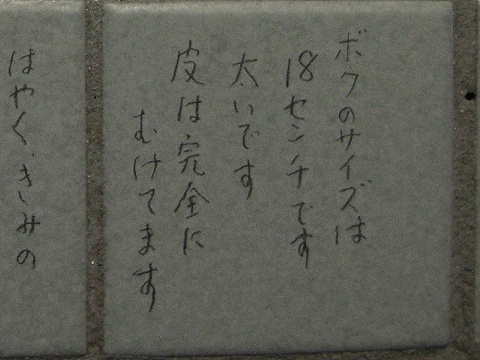 ボクのサイズは
18センチです
太いです
皮は完全に
むけてます
はやく、きみの